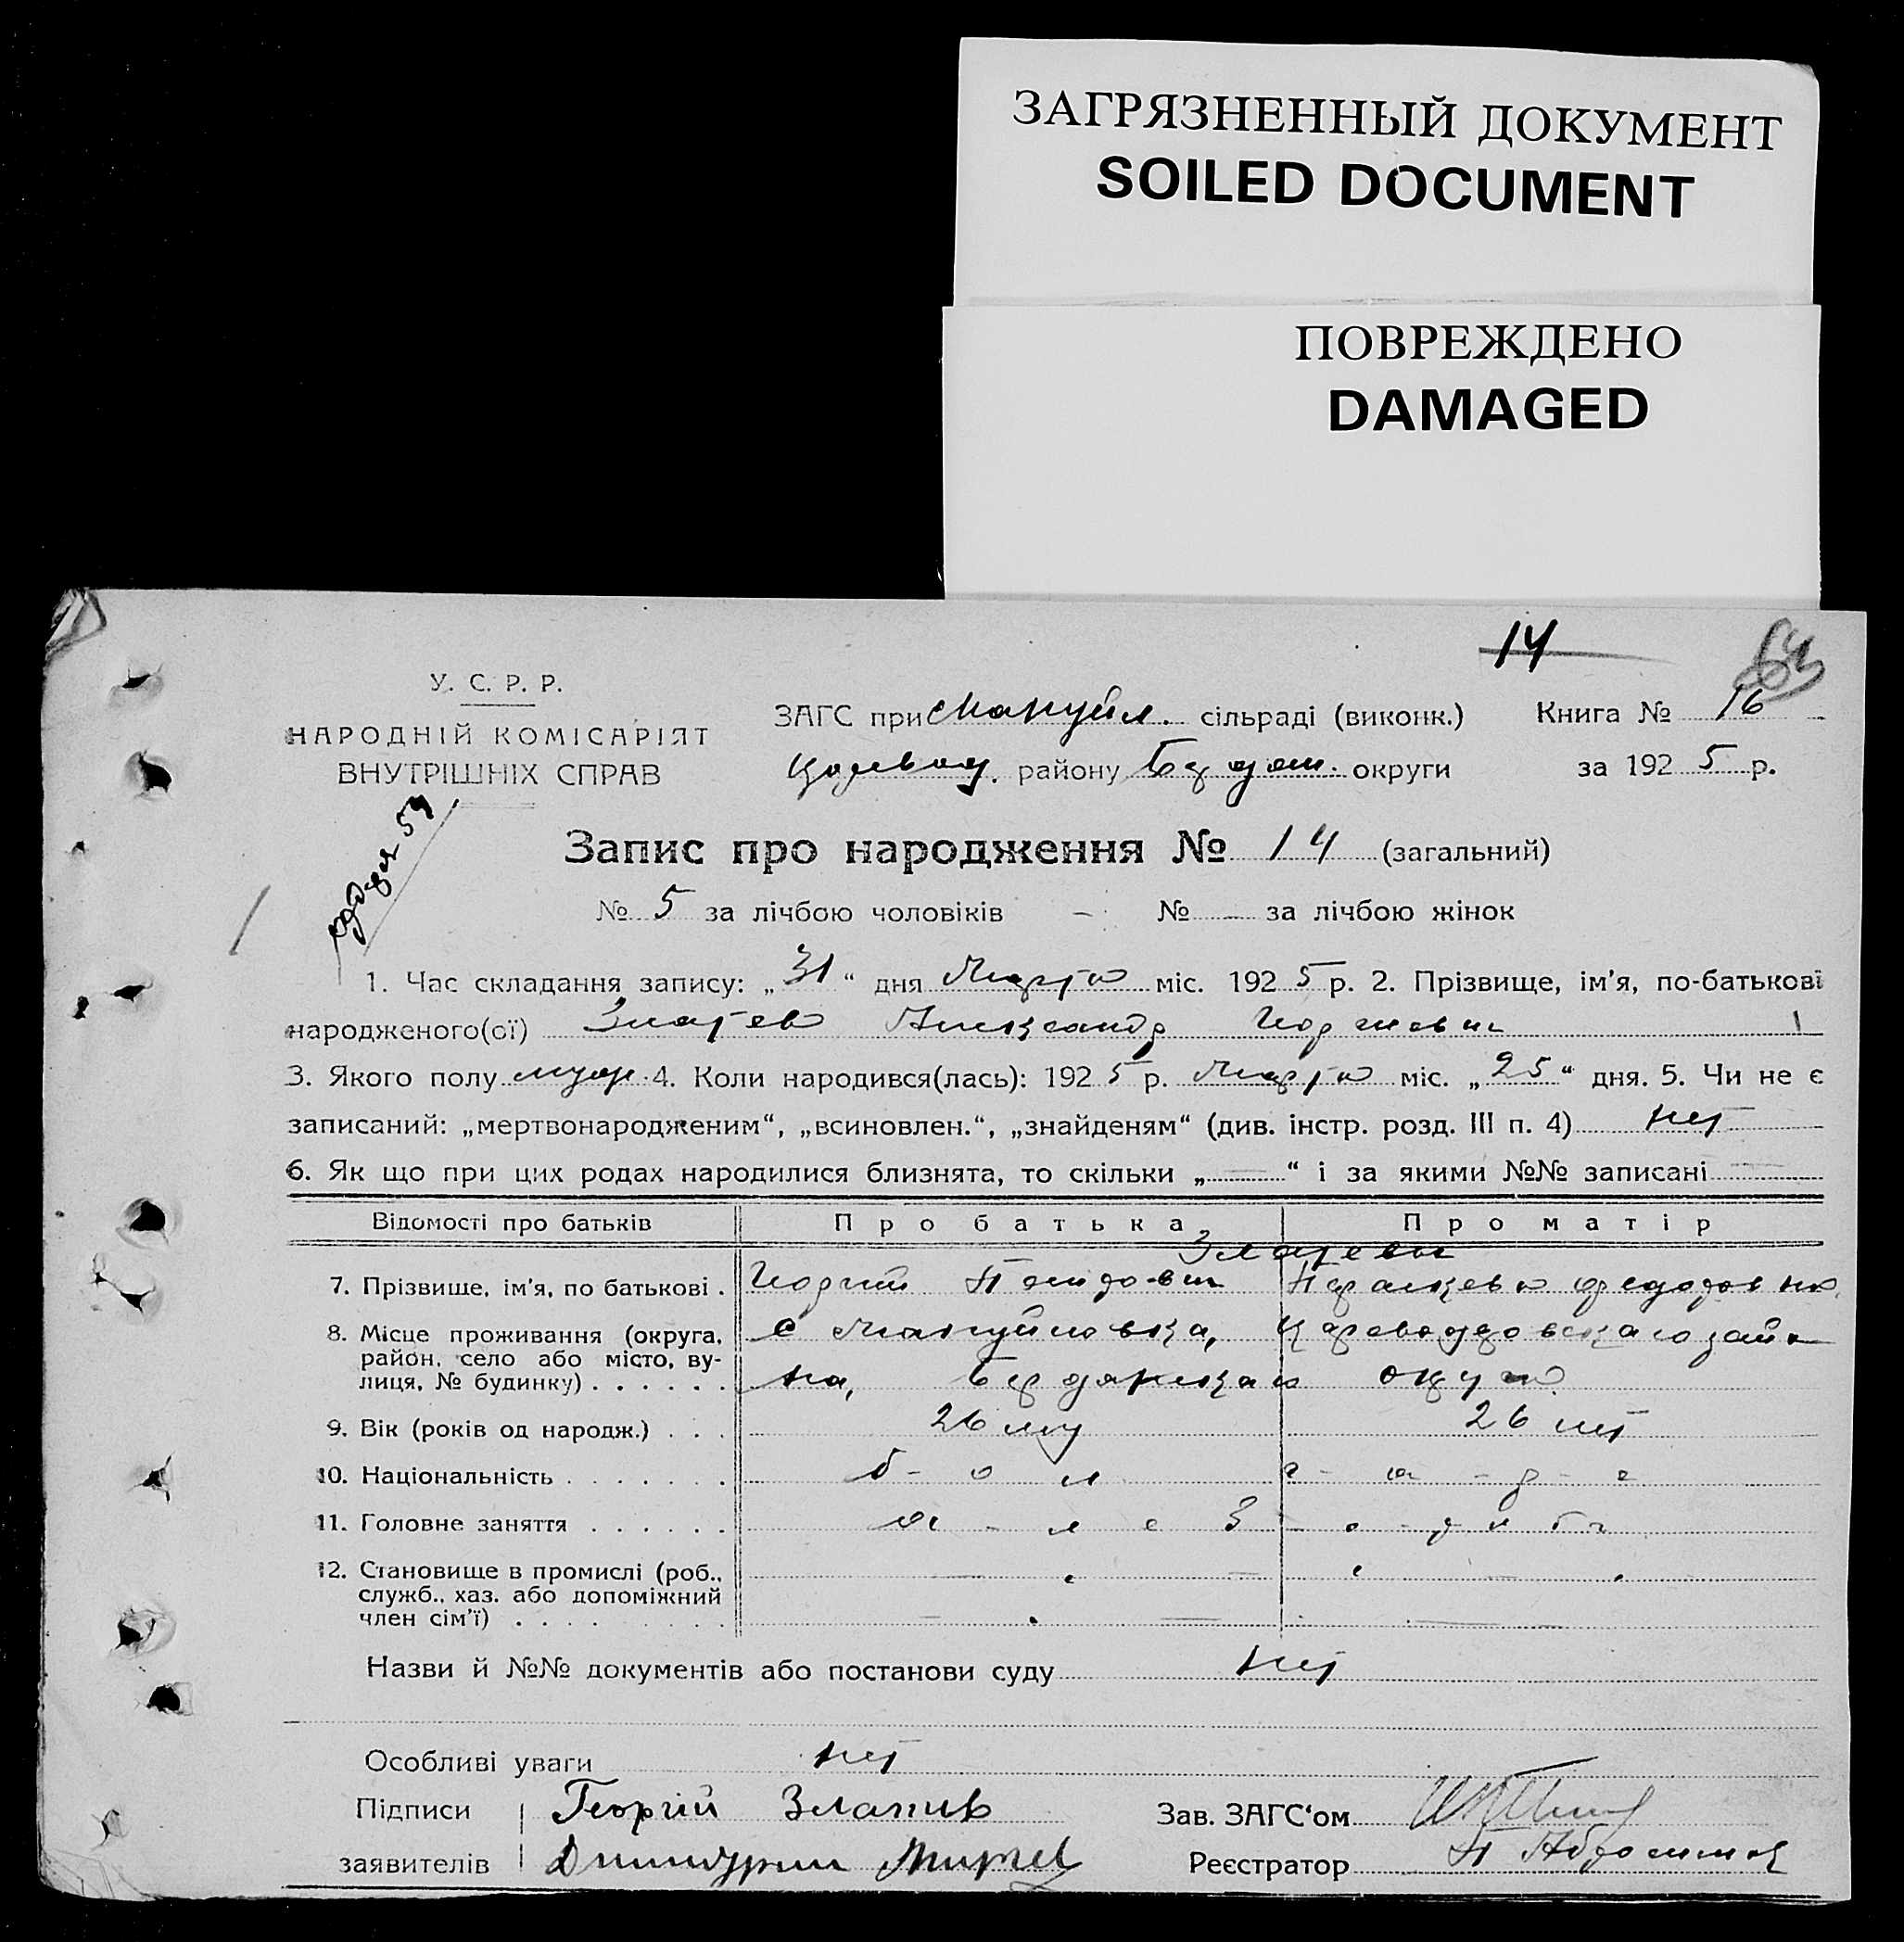 ЗАГРЯЗНЕННЫЙ ДОКУМЕНТ
SOILED DOCUMENT
ПОВРЕЖДЕНО
DAMAGED
14
У. С. Р. Р.
НАРОДНІЙ КОМІСАРІЯТ
ВНУТРІШНІХ СПРАВ
ЗАГС при Мануйл. сільраді (виконк.) Книга № 16
району округи за 1925 р.
Запис про народження № 14 (загальний)
№ 5 за лічбою чоловіків - № — за лічбою жінок
1. Час складання запису: „31“ дня Марта міс. 1925 р. 2. Прізвище, ім'я, по-батькові
народженого(ої) Златев Александр Георгиевич
3. Якого полу муж. 4. Коли народився(лась): 1925 р. Марта міс. „25“ дня. 5. Чи не є
записаний: „мертвонародженим“, „всиновлен.“, „знайденям“ (див. інстр. розд. III п. 4) нет
6. Як що при цих родах народилися близнята, то скільки „—“ і за якими №№ записані —
Відомості про батьків Про батька Про матір
Златевы
7. Прізвище, ім'я, по батькові . Георгий Федоровна
8. Місце проживання (округа, район, село або місто, вулиця, № будинку) . . . . . . с Мануйловка, Цареводаровскаго райо
на, Бердянскаго округа
9. Вік (років од народж.) . . . 26 лет 26 лет
10. Національність . . . . . . . б - о л г - а - р - е
11. Головне заняття . . . . . . х - л е б - о - р о б
12. Становище в промислі (роб., служб., хаз. або допоміжний член сім'ї) . . . . . . .
Назви й №№ документів або постанови суду нет
Особливі уваги нет
Підписи Георгій Златив Зав. ЗАГС'ом
заявителів Димитрий Реєстратор П